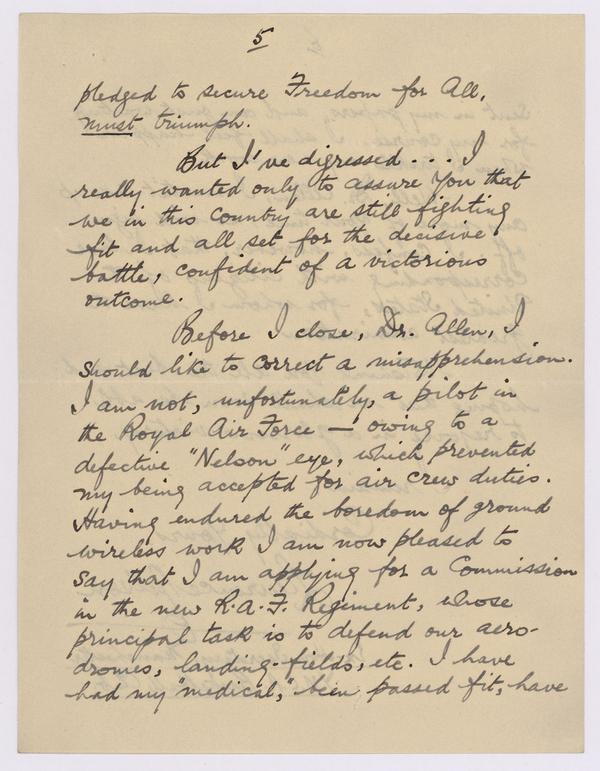 5
pledged to secure Freedom for All,
must triumph.
But I've digressed . . . I
really wanted only to assure you that
we in this country are still fighting
fit and all set for the decisive
battle, confident of a victorious
outcome.
Before I close, Dr. Allen, I
should like to correct a misapprehension.
I am not, unfortunately, a pilot in
the Royal Air Force — owing to a
defective "Nelson" eye, which prevented
my being accepted for air crew duties.
Having endured the boredom of ground
wireless work I am now pleased to
say that I am applying for a Commission
in the new R.A.F. Regiment, whose
principal task is to defend our aero-
dromes, landing-fields, etc. I have
had my "medical," been passed fit, have